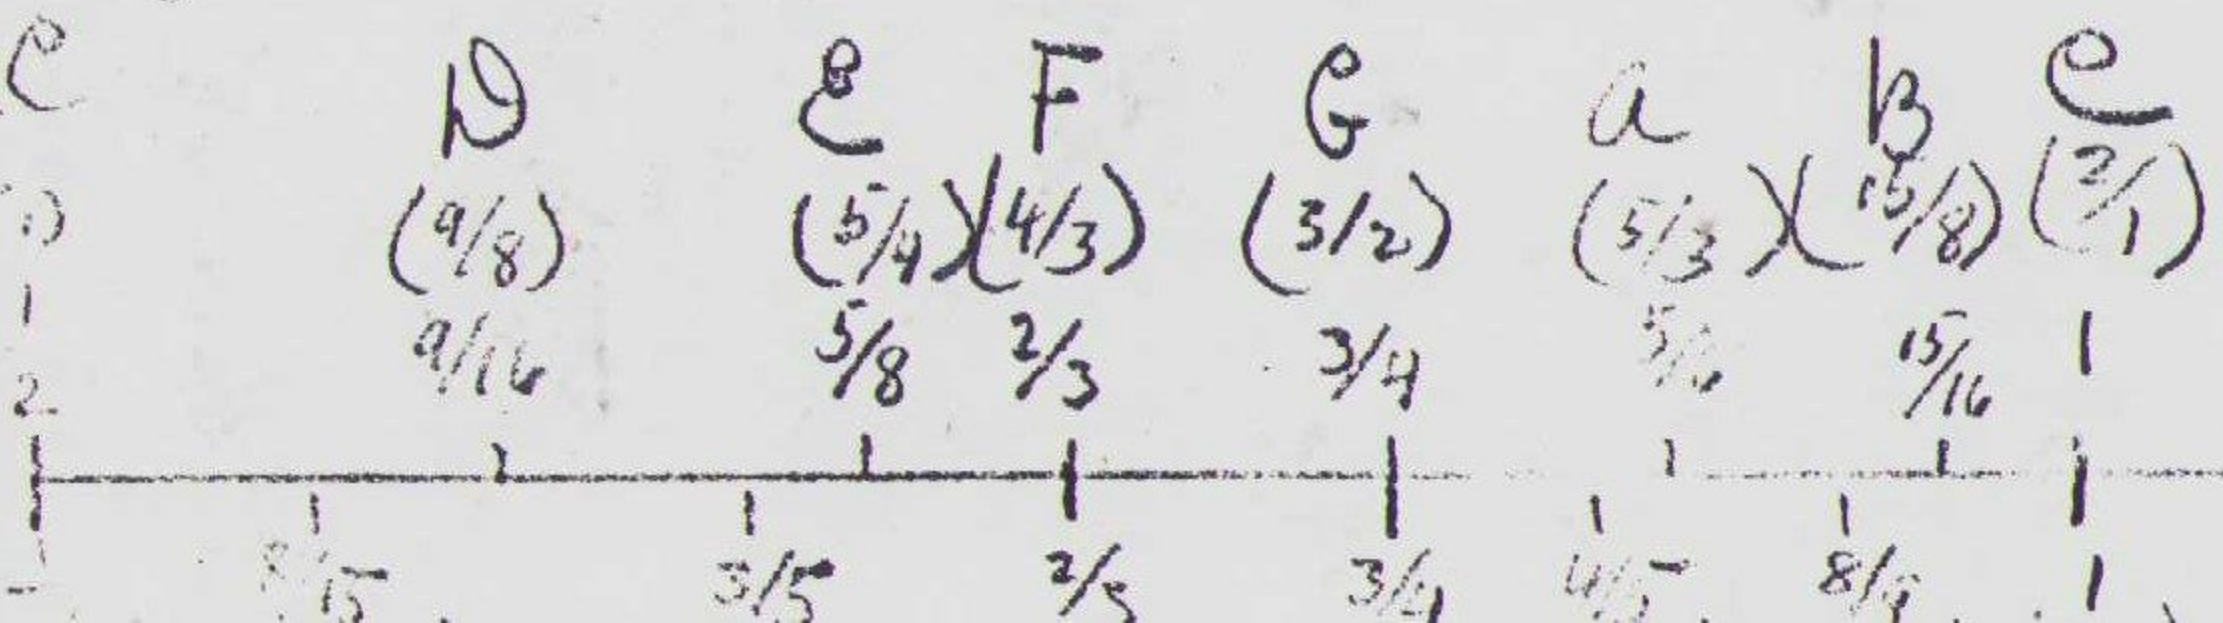 C D E F G a B C
1) (9/8) (5/4) (4/3) (3/2) (5/3) (15/8) (2/1)
1/2 9/16 5/8 2/3 3/4 5/6 15/16 1
8/15 3/5 2/3 3/4 4/5 8/9 1